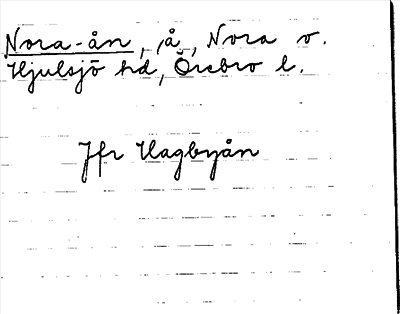 Nora-ån, å, Nora o.
Hjulsjö hd, Örebro l.
Jfr Hagbyån